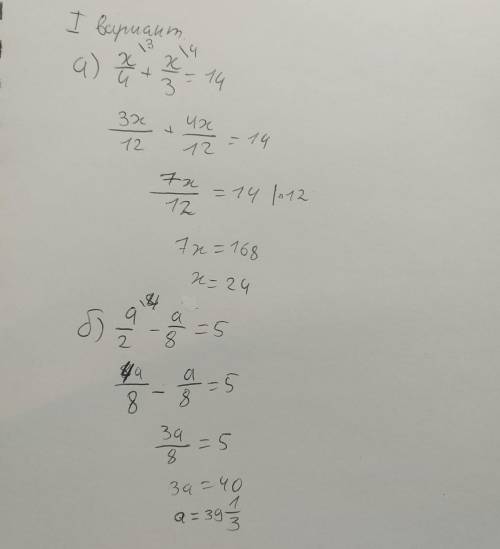 I вариант.
а) x/4 \3 + x/3 \4 = 14
3x/12 + 4x/12 = 14
7x/12 = 14 |·12
7x = 168
x = 24
б) a/2 \4 - a/8 = 5
4a/8 - a/8 = 5
3a/8 = 5
3a = 40
a = 39 1/3